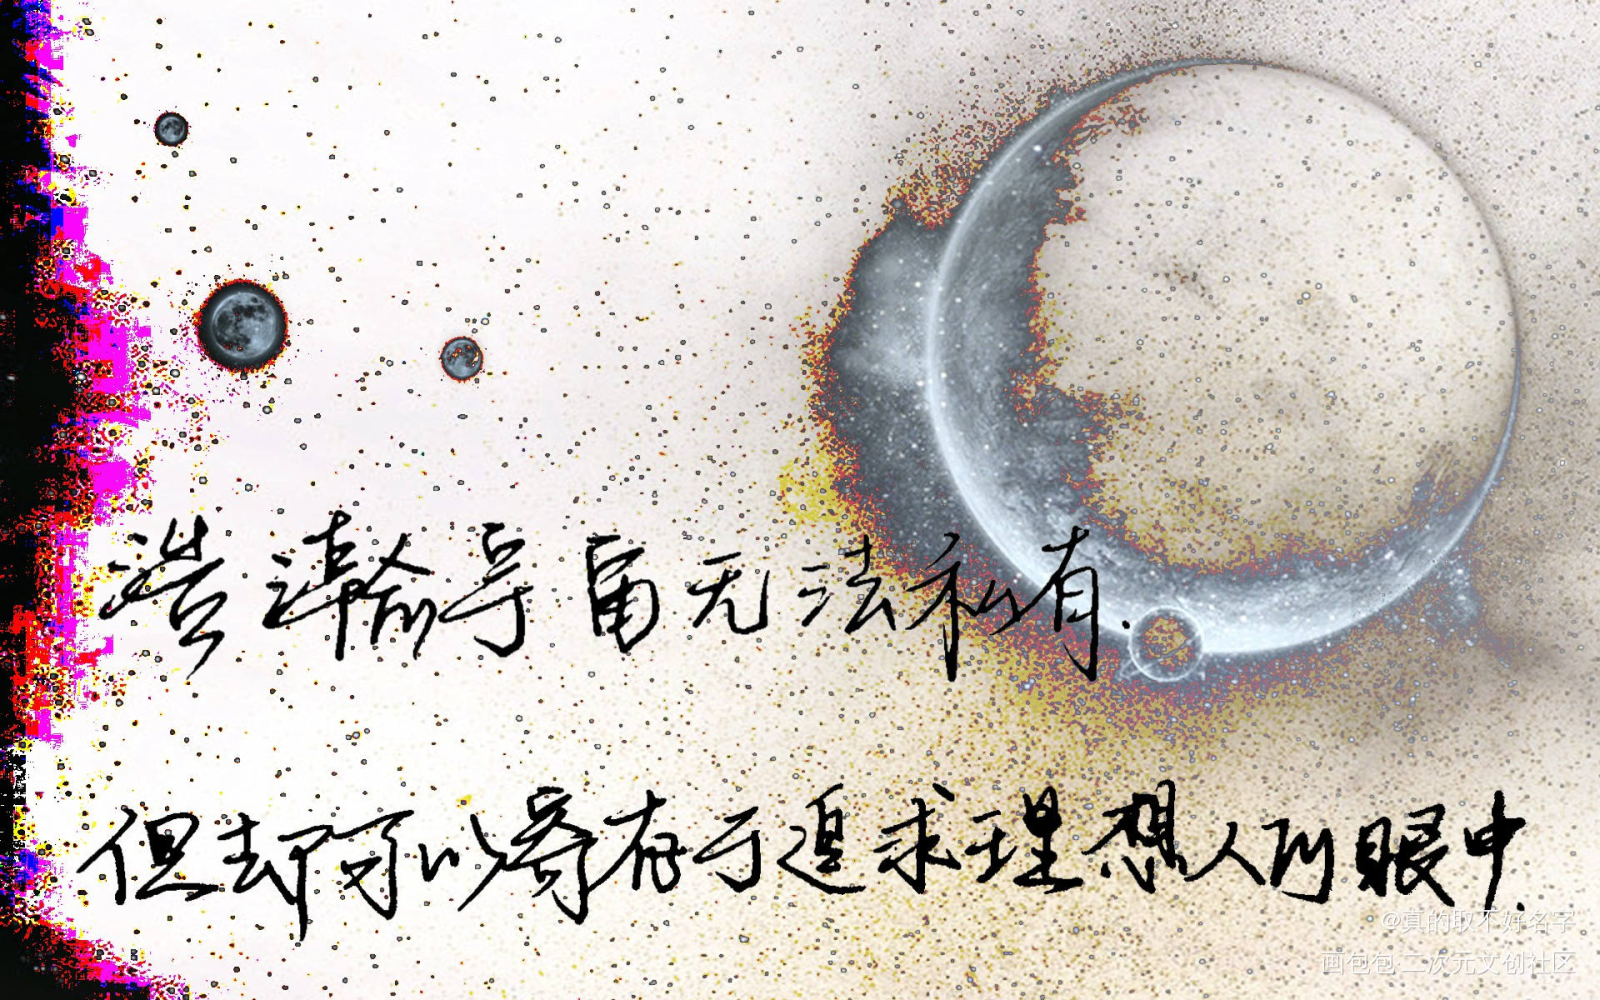 浩瀚宇宙无法私有.
但却可以寄存于追求理想人的眼中.
@真的取不好名字
画包包·二次元文创社区